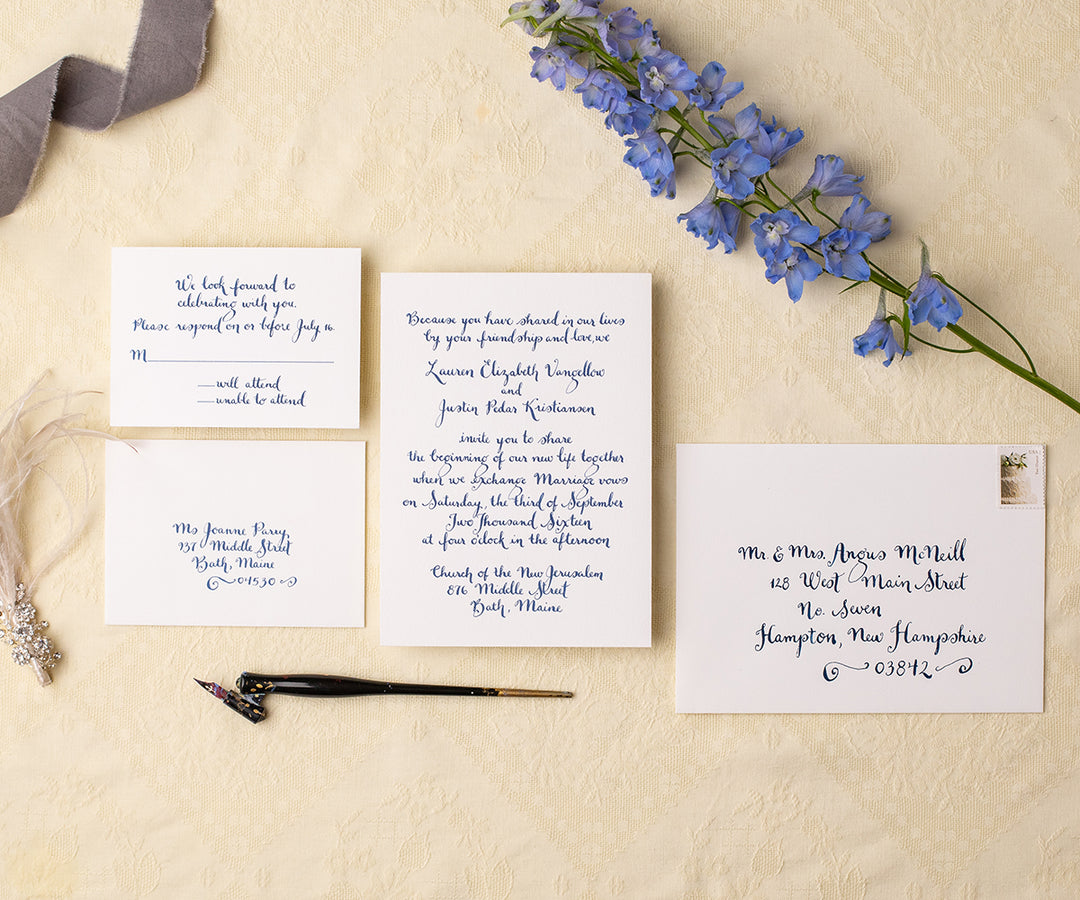 We look forward to
celebrating with you.
Please respond on or before July 16.
M
will attend
unable to attend
Ms Joanne Parry,
937 Middle Street
Bath, Maine
04530
Because you have shared in our lives
by your friendship and love, we
Lauren Elizabeth Vangellow
and
Justin Pedar Kristiansen
invite you to share
the beginning of our new life together
when we exchange Marriage vows
on Saturday, the third of September
Two Thousand Sixteen
at four o'clock in the afternoon
Church of the New Jerusalem
876 Middle Street
Bath, Maine
USA
Mr. & Mrs. Angus McNeill
128 West Main Street
No. Seven
Hampton, New Hampshire
03842